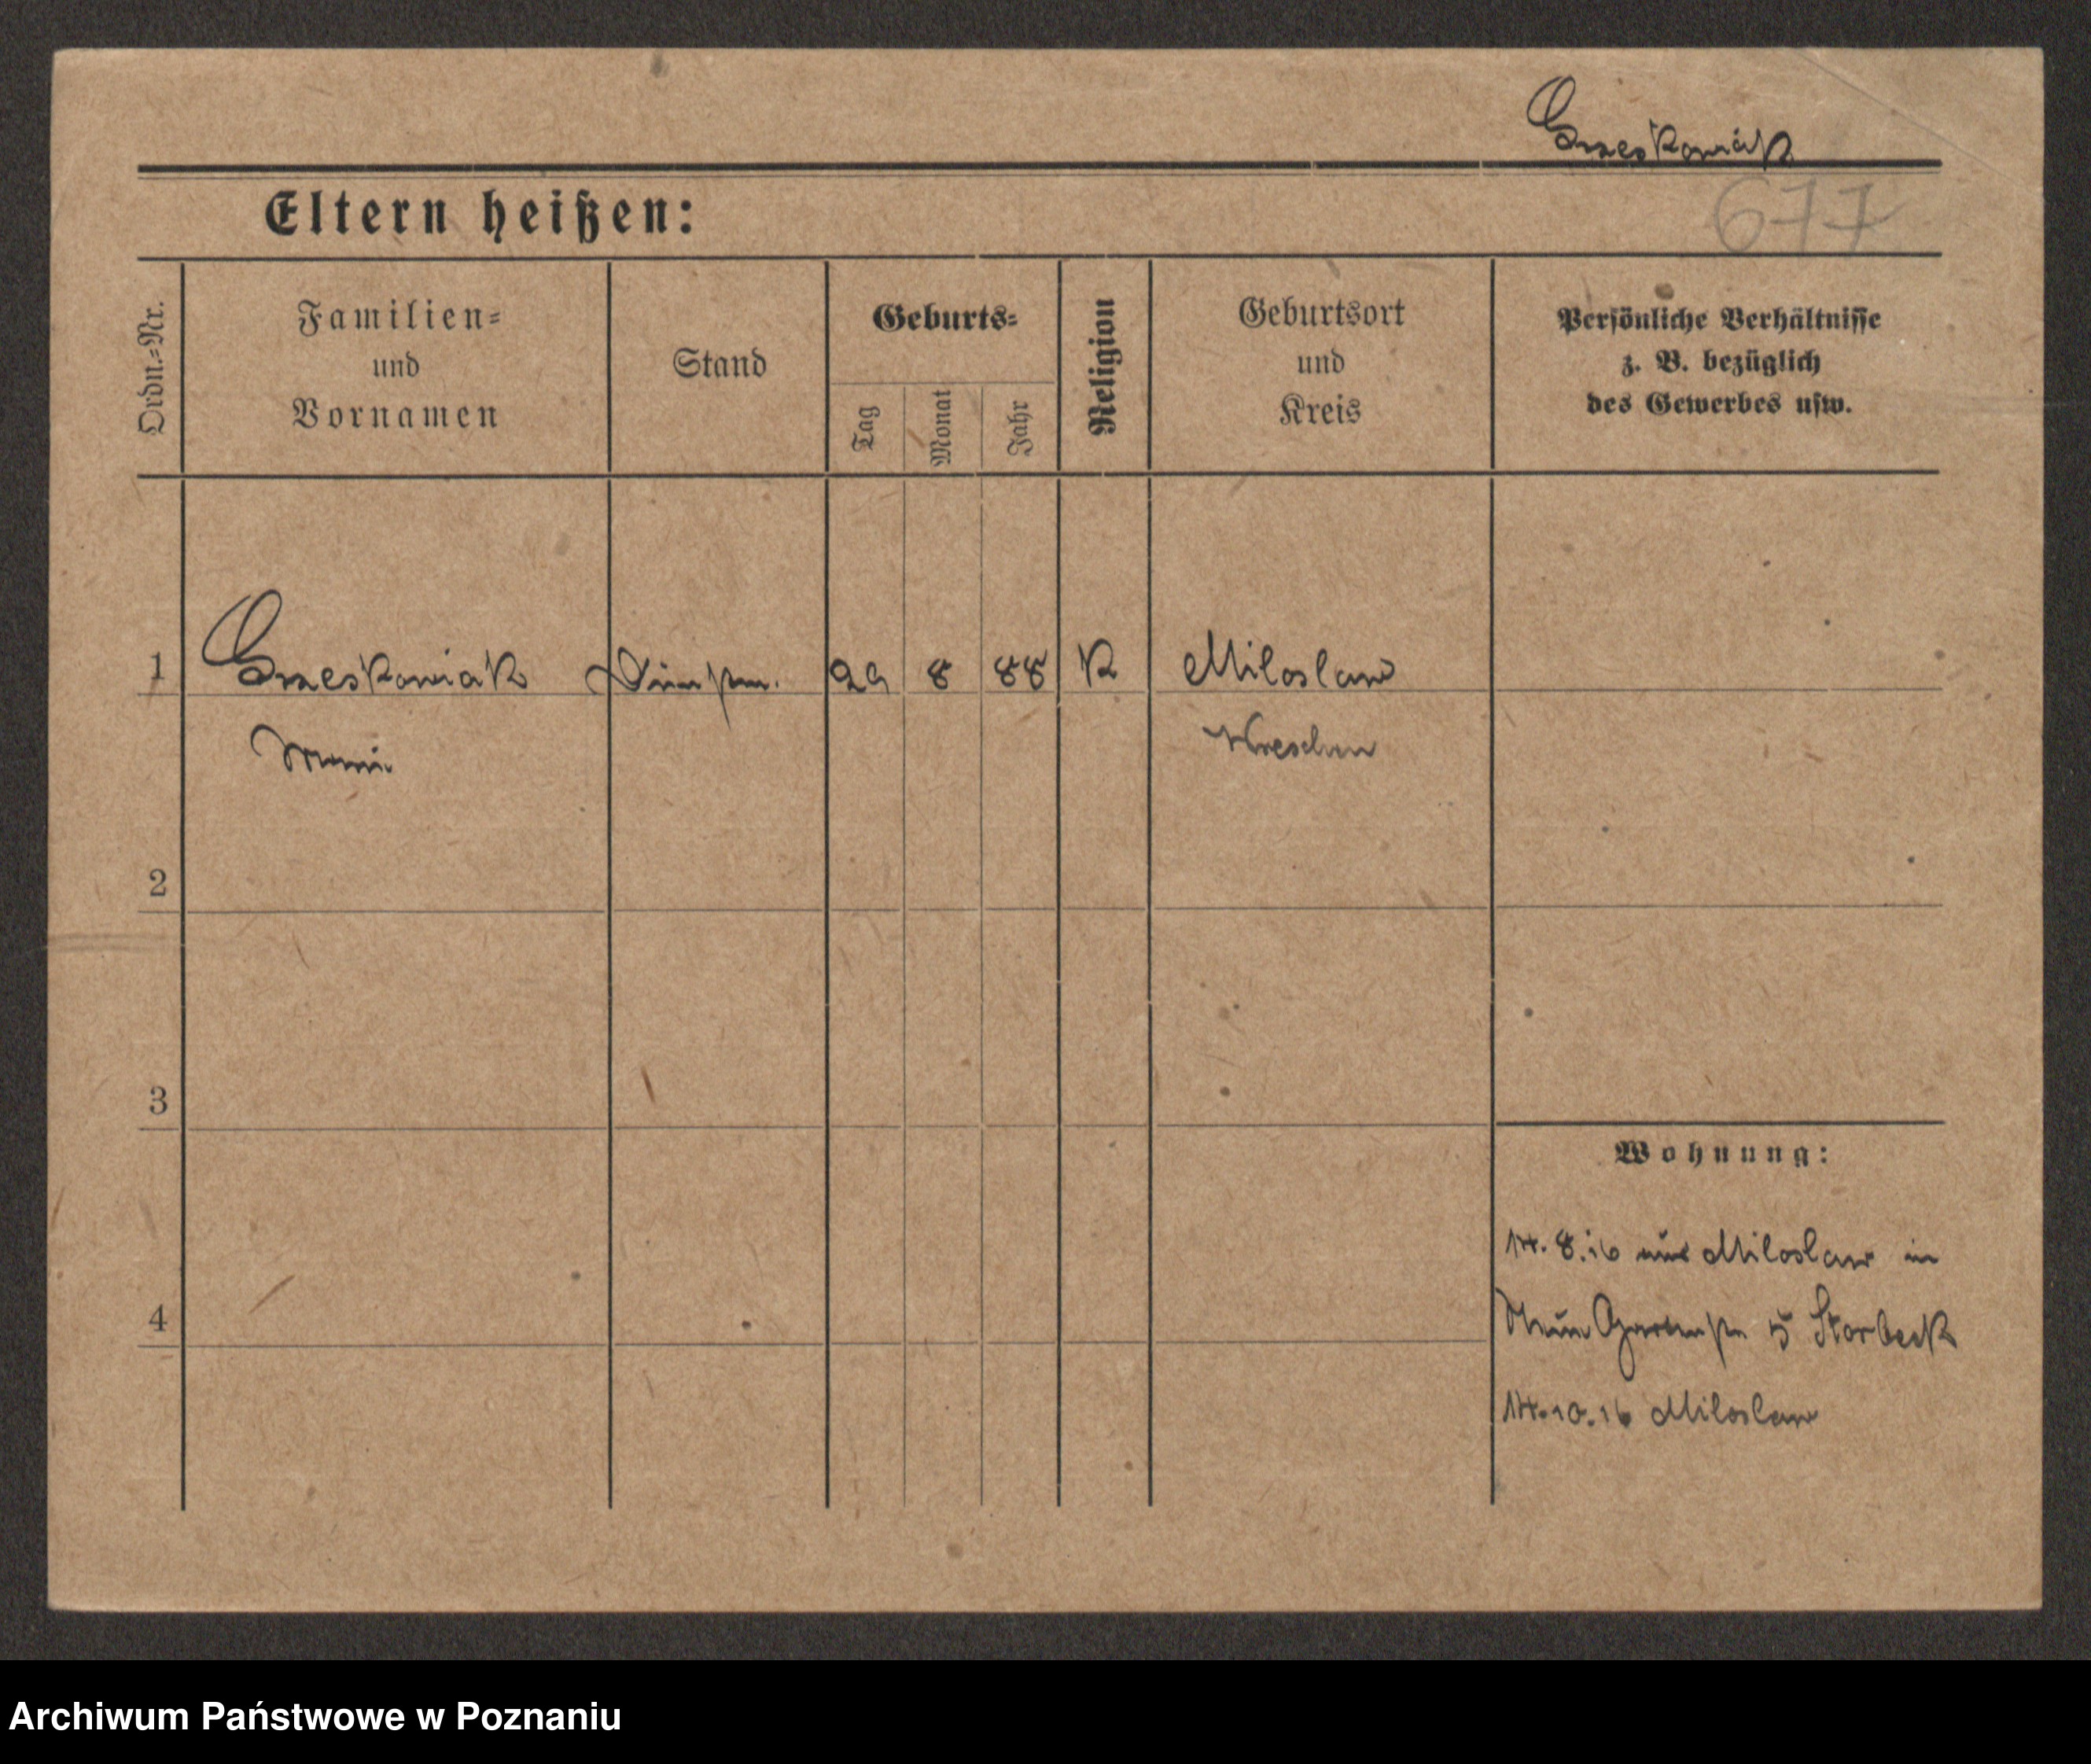 Grzeskowiak
677
Eltern heißen:
Ordn.=Nr.
Familien=
und
Vornamen
Stand
Geburts=
Tag
Monat
Jahr
Religion
Geburtsort
und
Kreis
Persönliche Verhältnisse
z. B. bezüglich
des Gewerbes usw.
1 Grzeskowiak 29 8 88 K Miloslaw
Wreschen
2
3
Wohnung:
14.8.16 aus Miloslaw in
5 Storbeck
4
14.10.16 Miloslaw
Archiwum Państwowe w Poznaniu